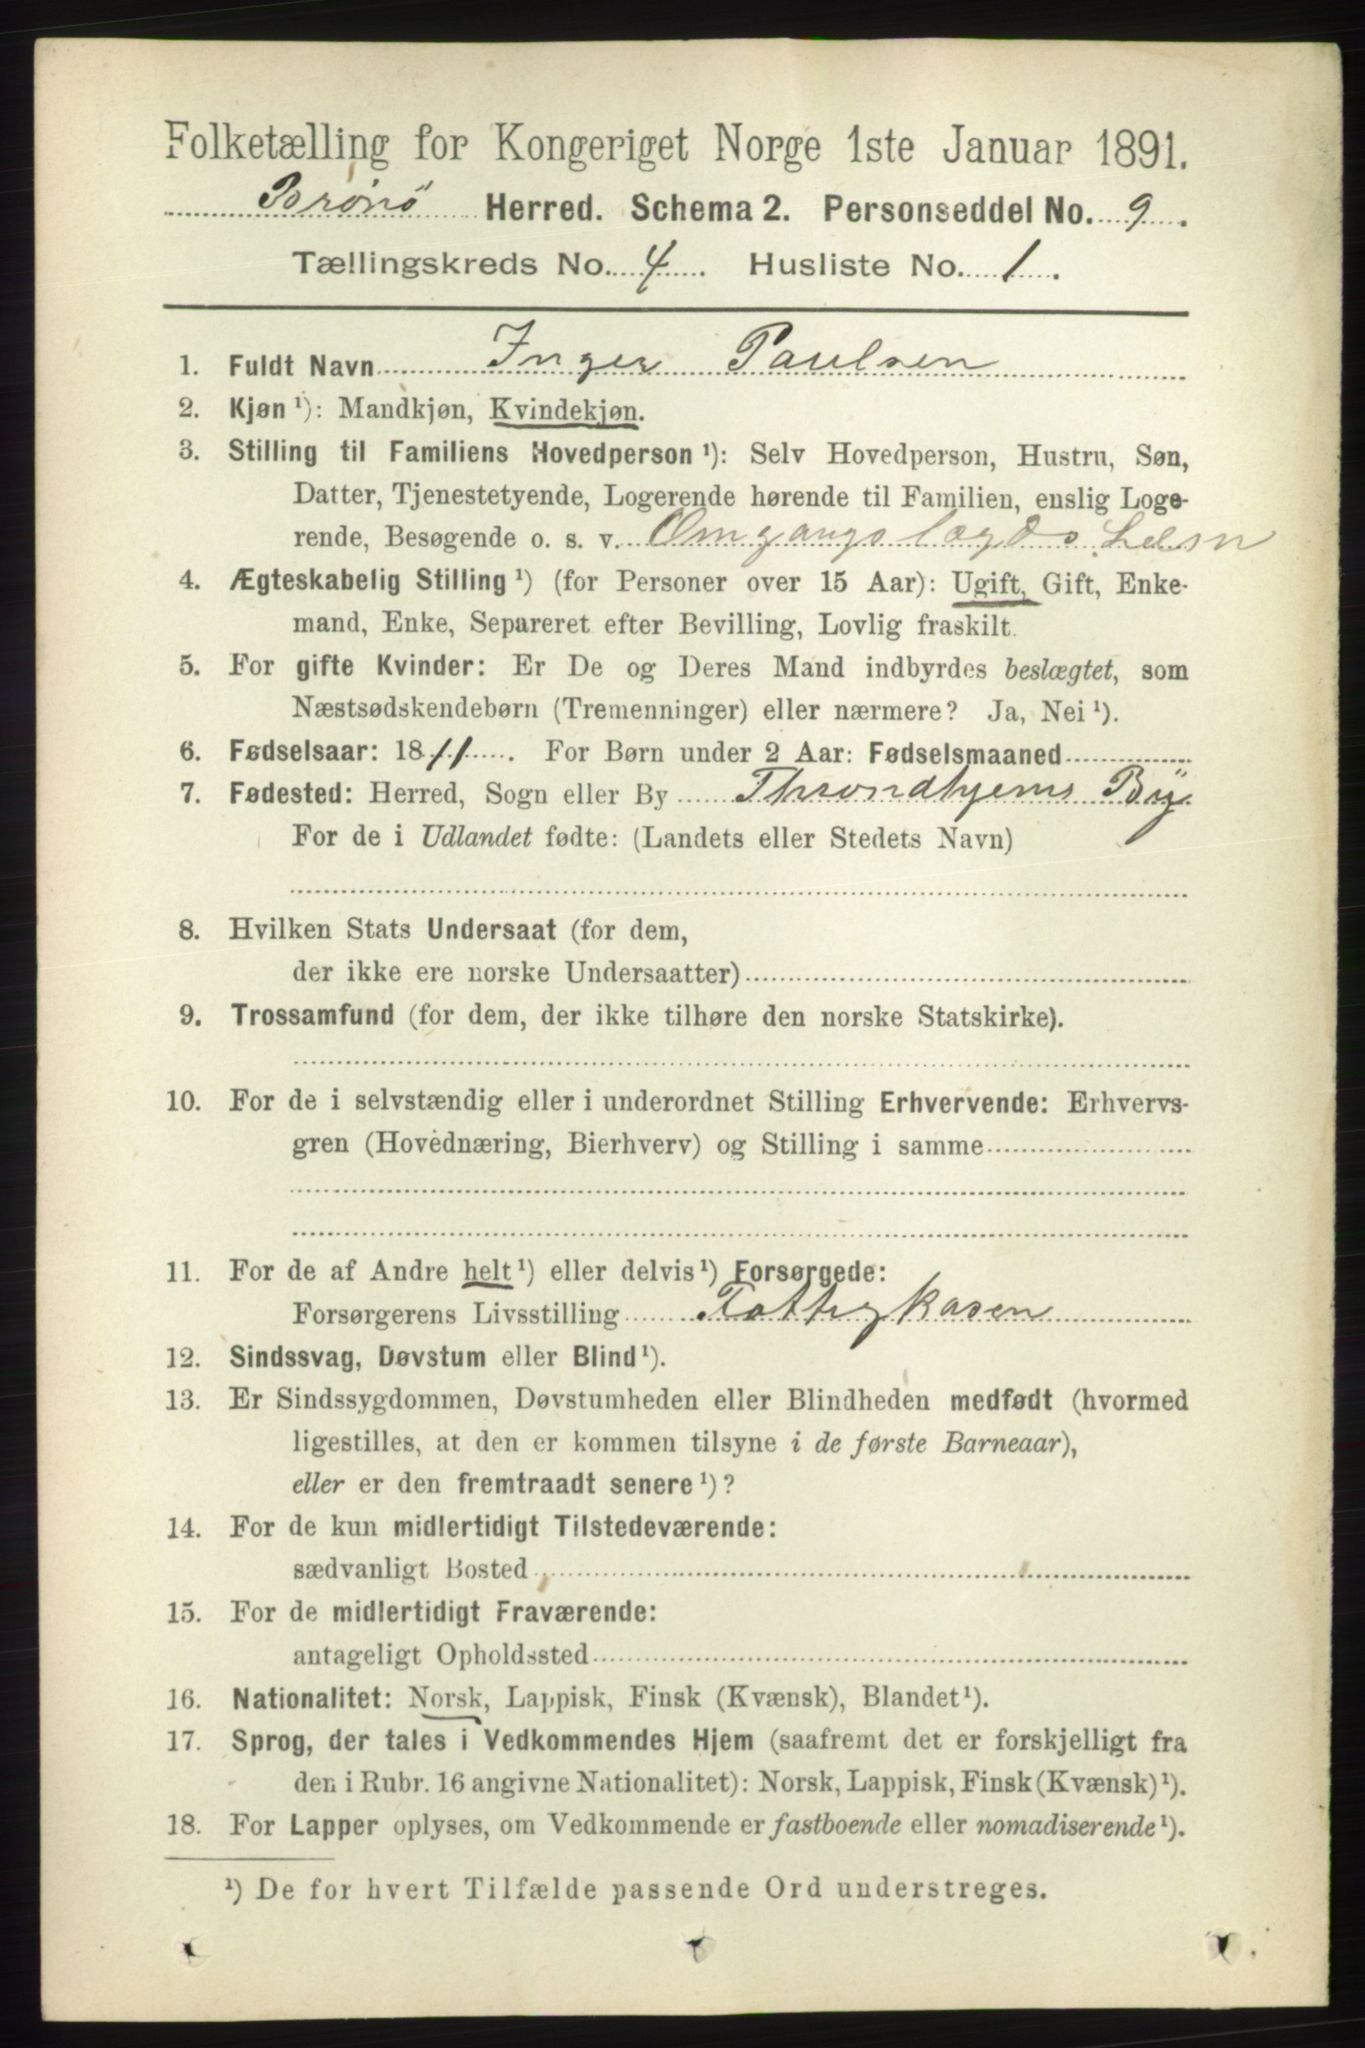 Folketælling for Kongeriget Norge 1ste Januar 1891.
Brönö Herred. Schema 2. Personseddel No. 9.
Tællingskreds No. 4. Husliste No. 1.
1. Fuldt Navn Inger Paulsen
2. Kjøn ¹): Mandkjøn, Kvindekjøn.
3. Stilling til Familiens Hovedperson ¹): Selv Hovedperson, Hustru, Søn,
Datter, Tjenestetyende, Logerende hørende til Familien, enslig Loge-
rende, Besøgende o. s. v. Omgangslægds
4. Ægteskabelig Stilling ¹) (for Personer over 15 Aar): Ugift, Gift, Enke-
mand, Enke, Separeret efter Bevilling, Lovlig fraskilt.
5. For gifte Kvinder: Er De og Deres Mand indbyrdes beslægtet, som
Næstsødskendebørn (Tremenninger) eller nærmere? Ja, Nei ¹).
6. Fødselsaar: 1811. For Børn under 2 Aar: Fødselsmaaned
7. Fødested: Herred, Sogn eller By Throndhjems By
For de i Udlandet fødte: (Landets eller Stedets Navn)
8. Hvilken Stats Undersaat (for dem,
der ikke ere norske Undersaatter)
9. Trossamfund (for dem, der ikke tilhøre den norske Statskirke).
10. For de i selvstændig eller i underordnet Stilling Erhvervende: Erhvervs-
gren (Hovednæring, Bierhverv) og Stilling i samme
11. For de af Andre helt ¹) eller delvis ¹) Forsørgede:
Forsørgerens Livsstilling Fattigkasen
12. Sindssvag, Døvstum eller Blind ¹).
13. Er Sindssygdommen, Døvstumheden eller Blindheden medfødt (hvormed
ligestilles, at den er kommen tilsyne i de første Barneaar),
eller er den fremtraadt senere ¹)?
14. For de kun midlertidigt Tilstedeværende:
sædvanligt Bosted
15. For de midlertidigt Fraværende:
antageligt Opholdssted
16. Nationalitet: Norsk, Lappisk, Finsk (Kvænsk), Blandet ¹).
17. Sprog, der tales i Vedkommendes Hjem (saafremt det er forskjelligt fra
den i Rubr. 16 angivne Nationalitet): Norsk, Lappisk, Finsk (Kvænsk) ¹).
18. For Lapper oplyses, om Vedkommende er fastboende eller nomadiserende ¹).
¹) De for hvert Tilfælde passende Ord understreges.